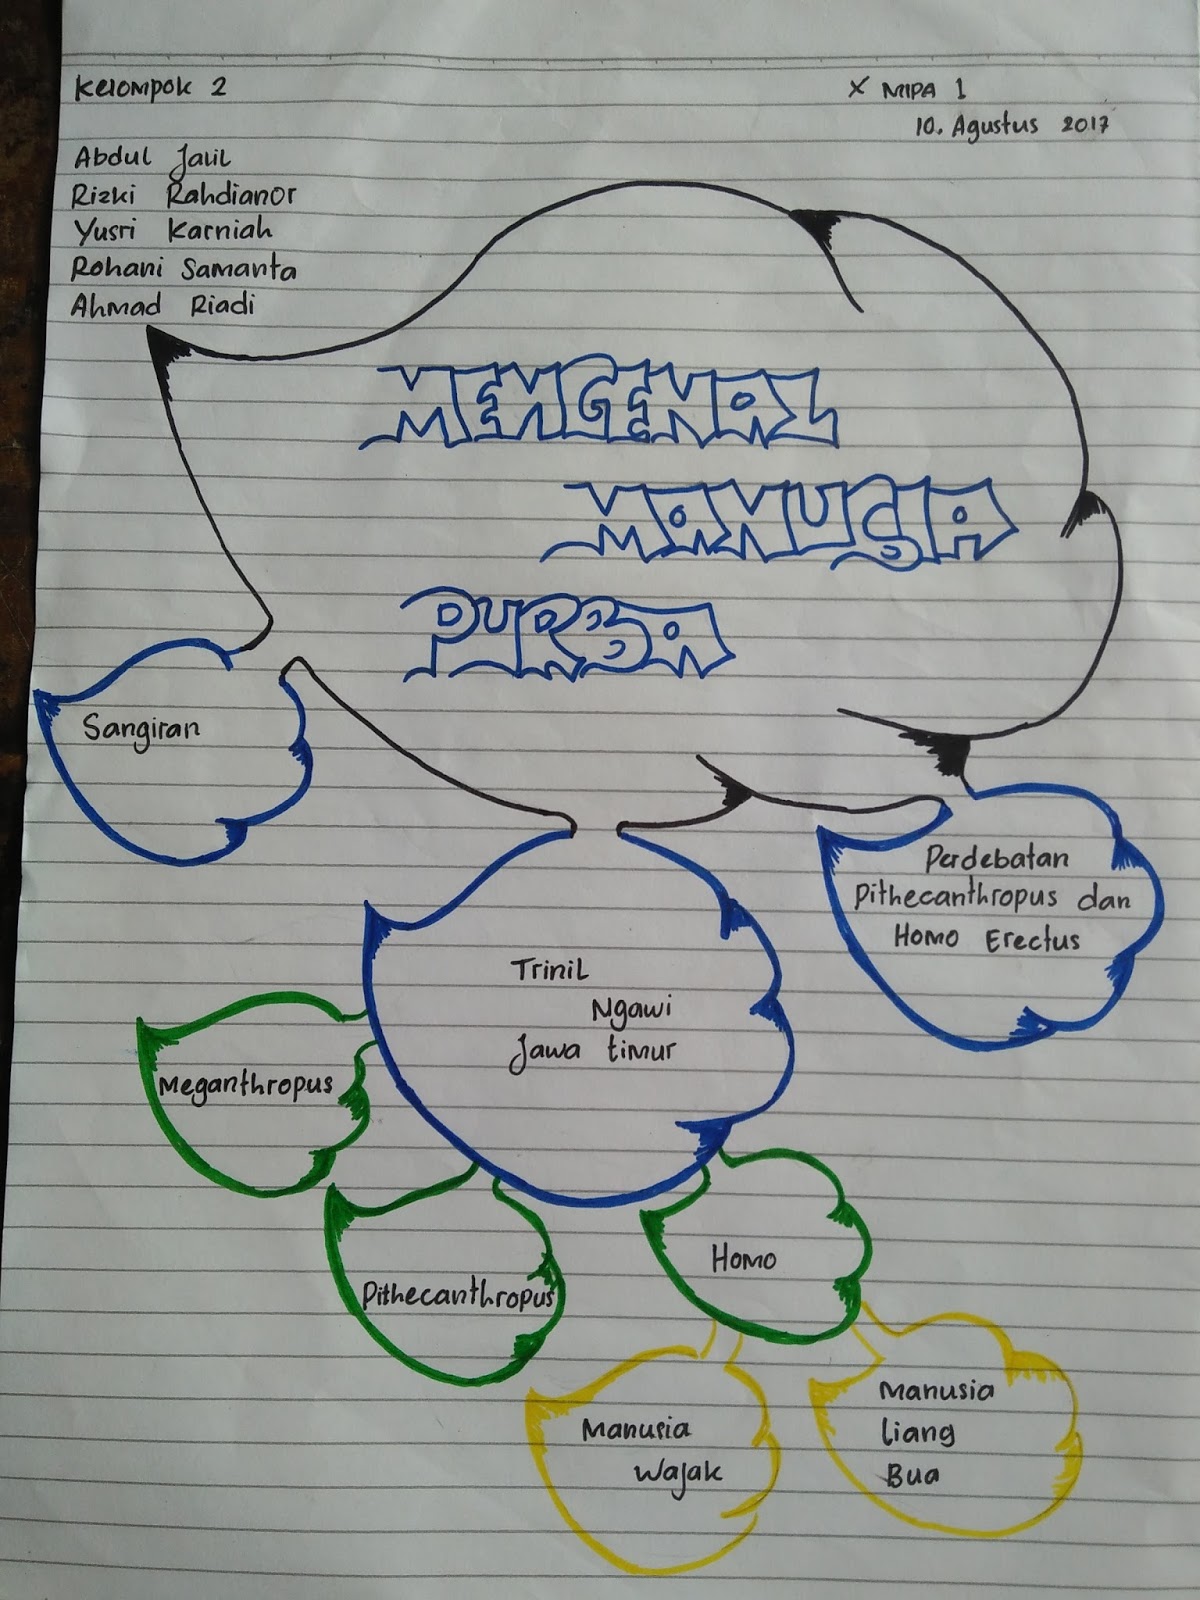 Kelompok 2
X MIPA 1
10. Agustus 2017
Abdul Jalil
Rizki Rahdianor
Yusri Karniah
Rohani Samanta
Ahmad Riadi
MENGENAL
MANUSIA
PURBA
Sangiran
Perdebatan
Pithecanthropus dan
Homo Erectus
Trinil
Ngawi
Jawa timur
Meganthropus
Pithecanthropus
Homo
Manusia
Wajak
Manusia
Liang
Bua